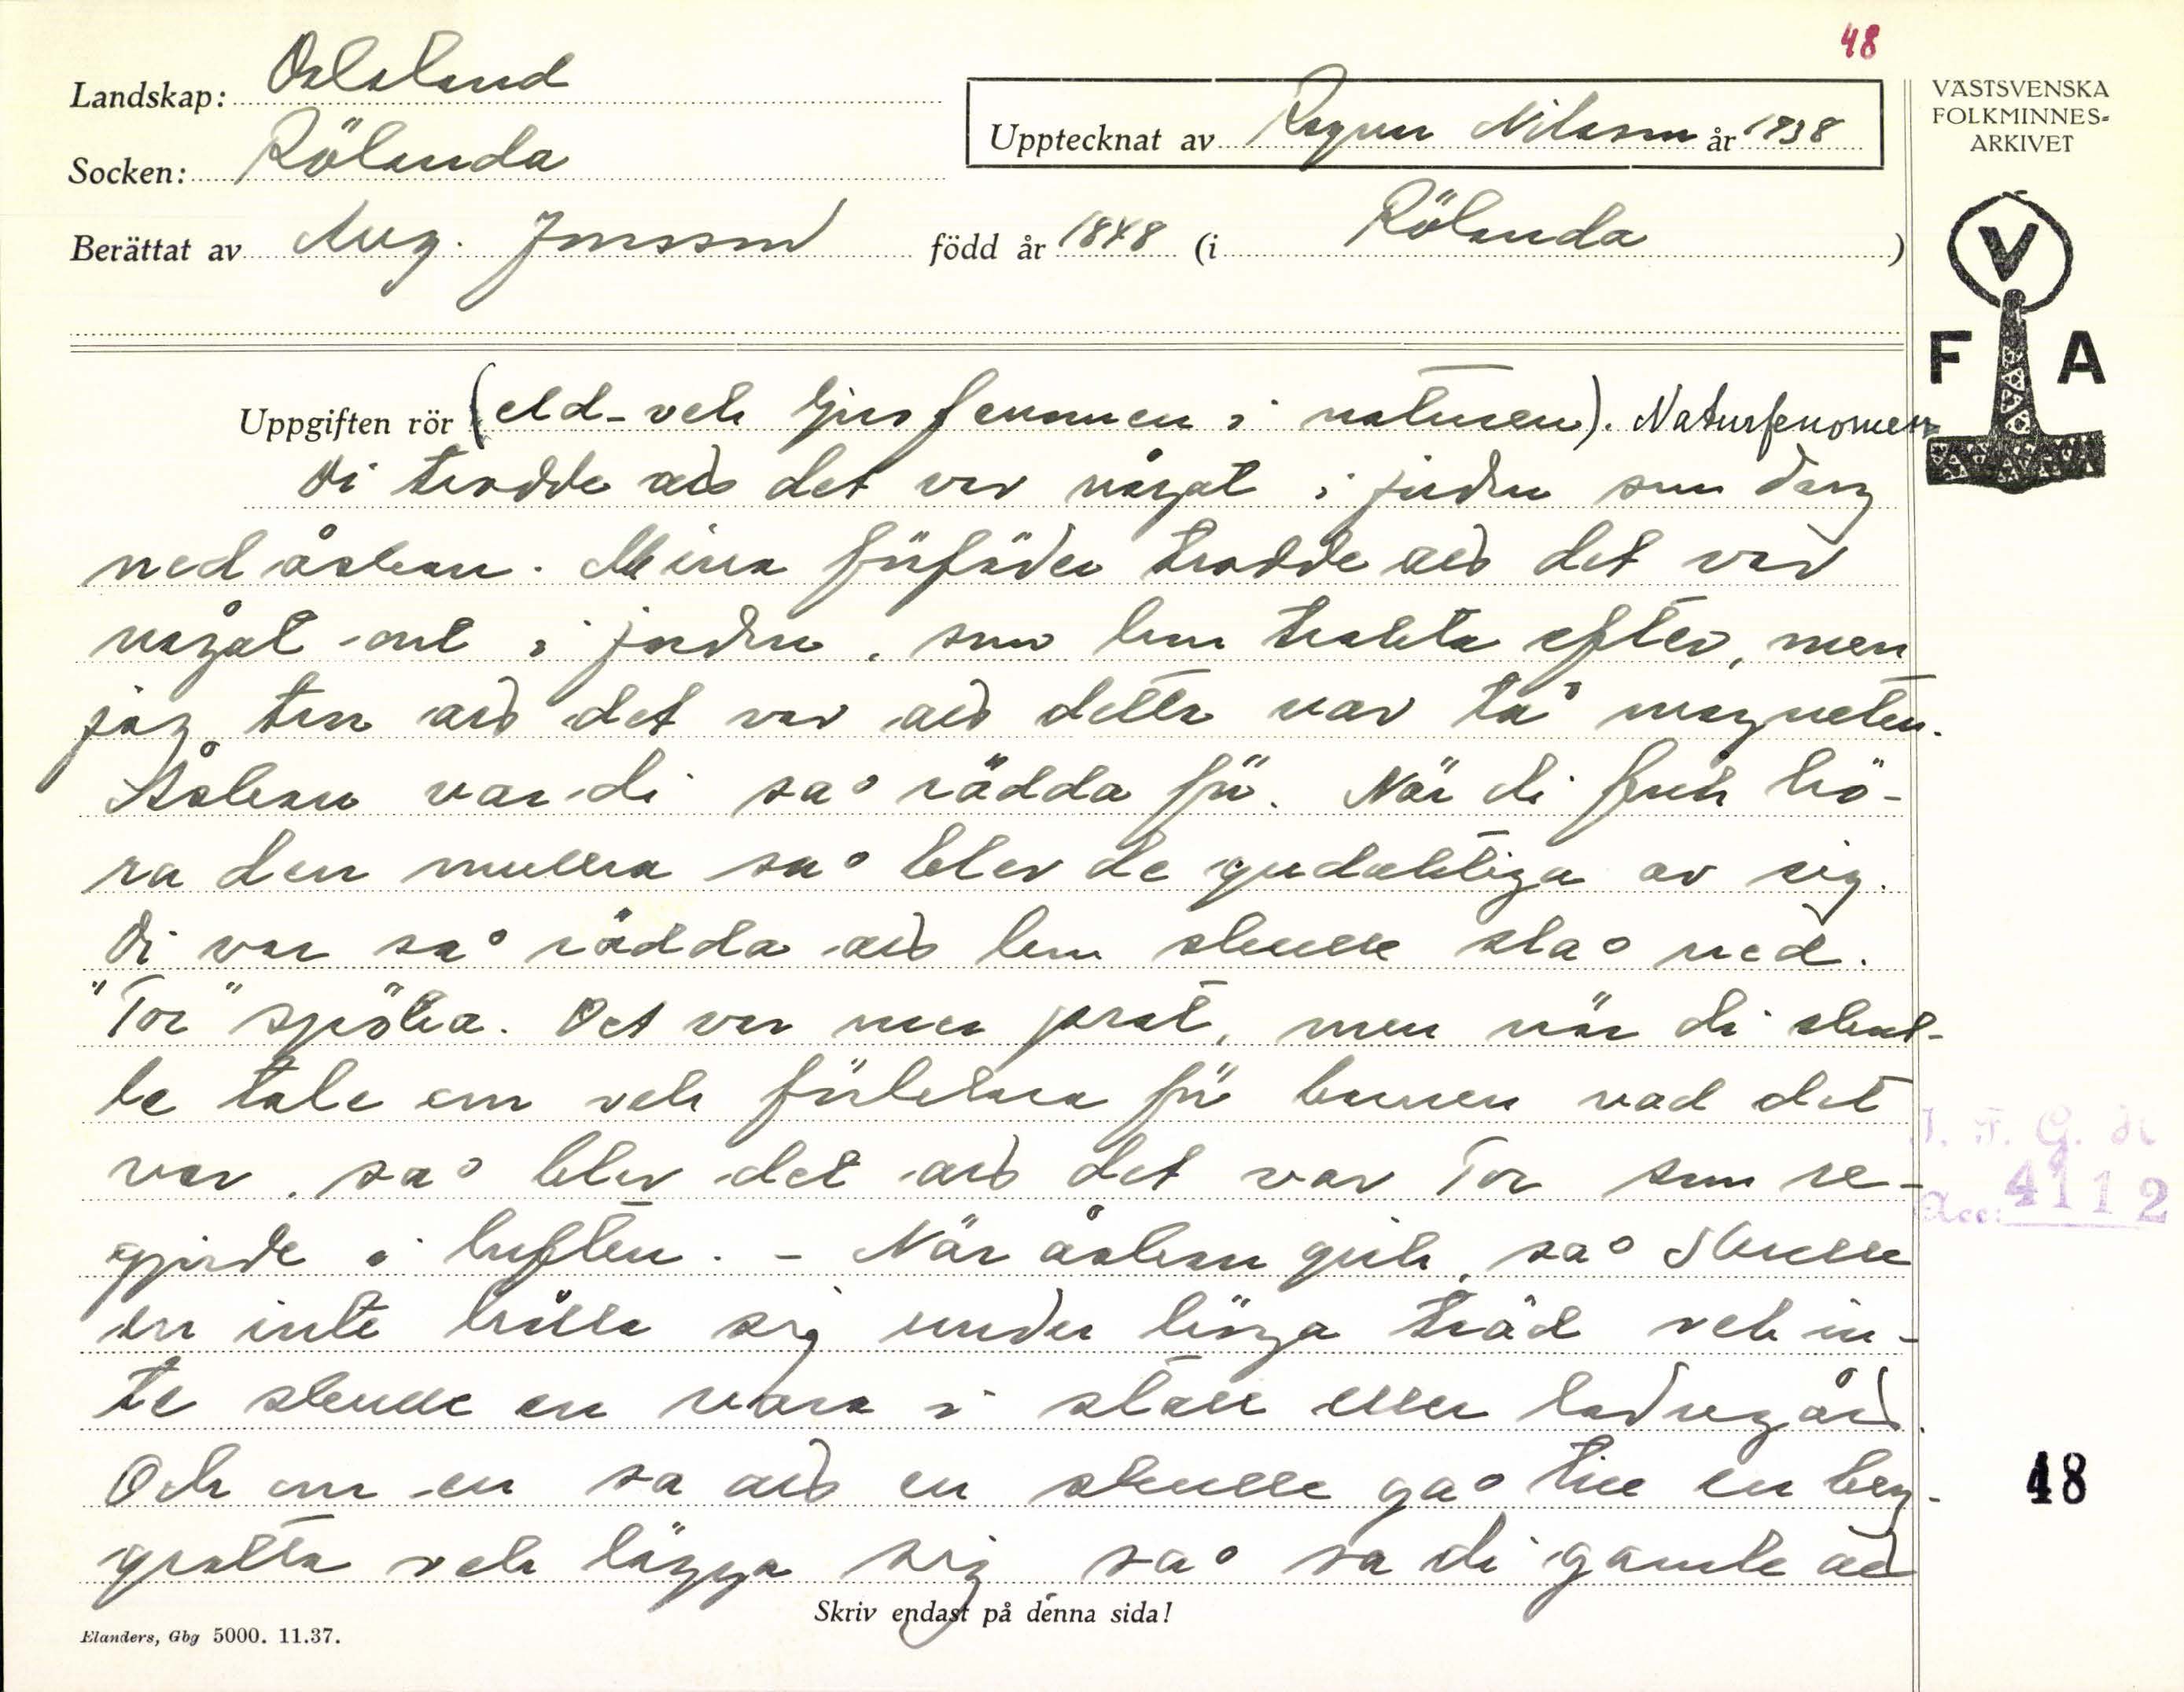 48
Landskap: Dalsland
Socken: Rölanda
Upptecknat av Ragnar Nilsson år 1938
Berättat av Aug. Jonsson född år 1848 (i Rölanda)
VÄSTSVENSKA
FOLKMINNES-
ARKIVET
V
F A
Uppgiften rör (eld- och ljusfenomen i naturen). Naturfenomen
Di trodde att det var något i jorden som drog
ned åskan. Mina förfäder trodde att det var
något ont i jorden, som hon trakta efter, men
jag tror att det var att detta var ta magneten.
Åskan var di så rädda för. När di fick hö-
ra den mullra så blev de gudaktiga av sig.
Di var så rädda att hon skulle slå ned.
"Tor" spöka. Det var mer prat, men när di skul-
le tale om och förklara för barnen vad det
var, så blev det att det var Tor som re-
gjorde i luften. - När åskan gick, så skulle
en inte hålla sig under höga träd och in-
te skulle en vara i stall eller ladugård.
Och om en sa att en skulle gå till en berg-
grotta och lägga sig, så sa di gamle att
Skriv endast på denna sida!
Elanders, Gbg 5000. 11.37.
I. F. G. H
Acc: 4112
48